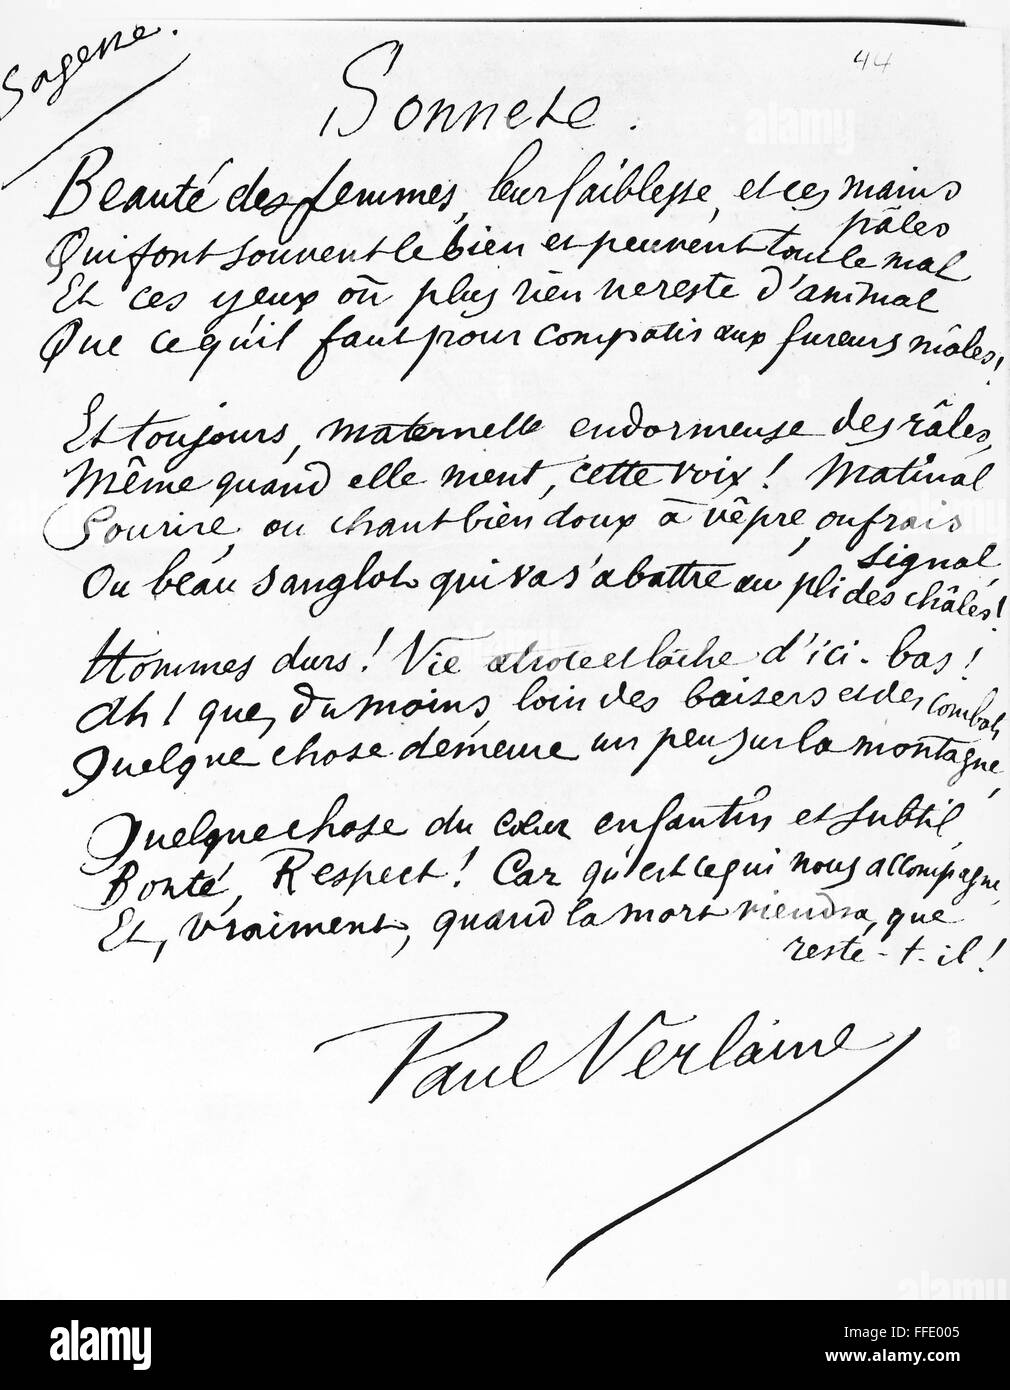 Sagesse.
44
Sonnet.
Beauté des femmes, leur faiblesse, et ces mains
pâles
Qui font souvent le bien et peuvent tout le mal
Et ces yeux où plus rien ne reste d'animal
Que ce qu'il faut pour compatir aux fureurs mâles!
Et toujours, maternelle endormeuse des râles,
Même quand elle ment, cette voix! Matinal
Sourire, ou chant bien doux à vêpre, ou frais
signal,
Ou beau sanglot qui va s'abattre au pli des châles!
Hommes durs! Vie atroce et lâche d'ici-bas!
Ah! que, du moins, loin des baisers et des combats
Quelque chose demeure un peu sur la montagne,
Quelque chose du cœur enfantin et subtil,
Bonté, Respect! Car qu'est ce qui nous accompagne,
Et, vraiment, quand la mort viendra, que
reste-t-il!
Paul Verlaine
alamy
Image ID: FFE005
www.alamy.com